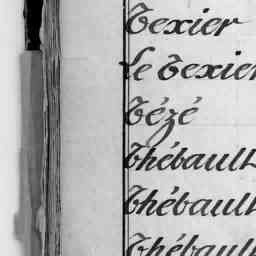 Texier
Le Texier
Tézé
Thébault
Thébault
Thébault